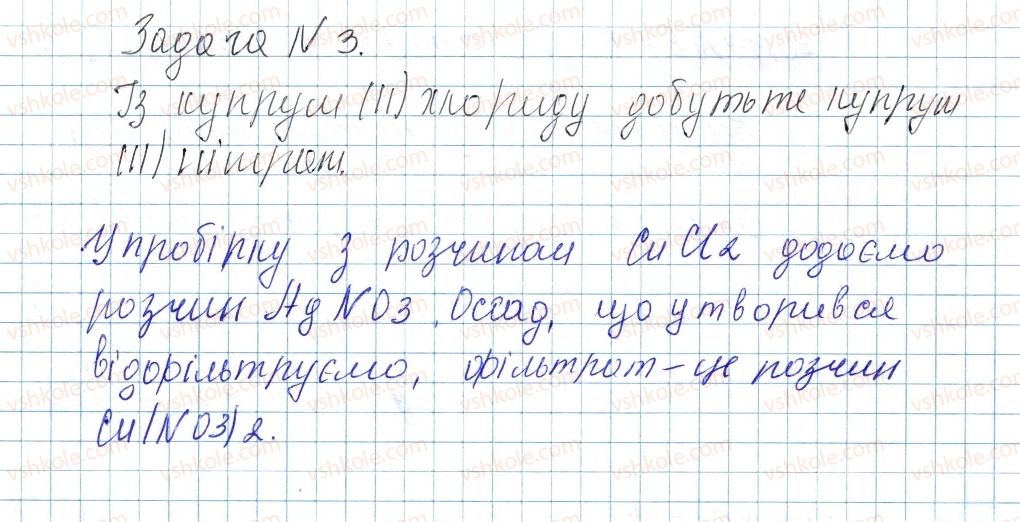 Задача N 3.
Із купрум (II) хлориду добутьте купрум
(II) нітрат.
У пробірку з розчином CuCl2 додаємо
розчин AgNO3. Осад, що утворився
відфільтруємо, фільтрат – це розчин
Cu(NO3)2.